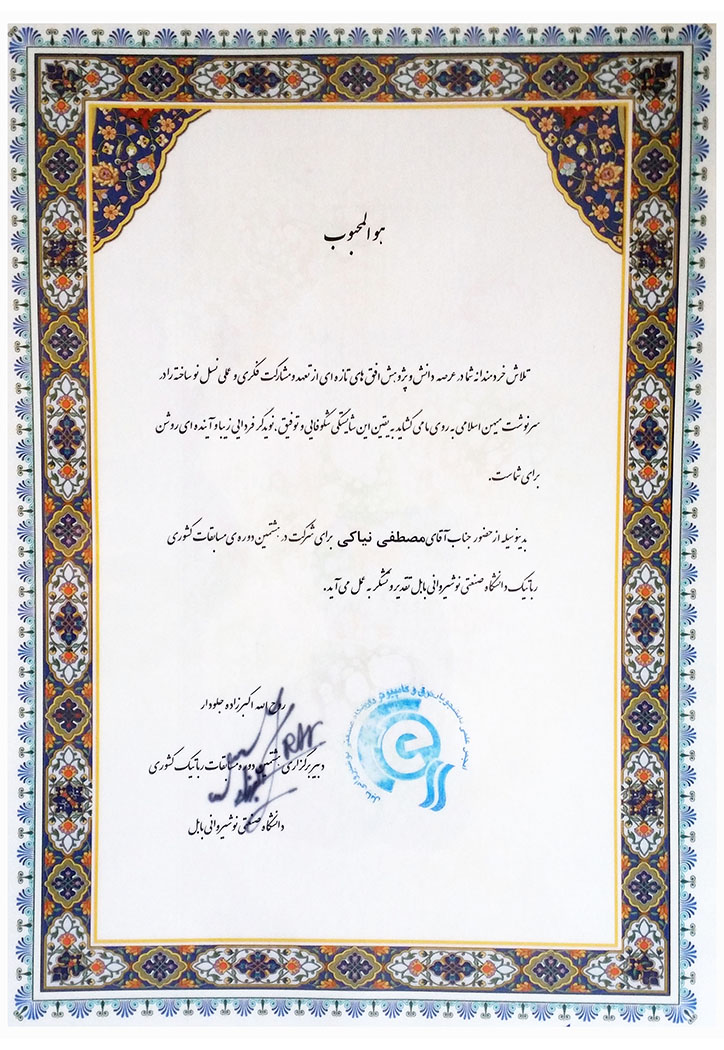 هو المحبوب
تلاش خردمندانه شما در عرصه دانش و پژوهش افق های تازه ای از تعهد و مشارکت فکری و عملی نسل نو ساخته را در
سرنوشت میهن اسلامی به روی ما می گشاید. به یقین این شایستگی شکوفایی و توفیق، نویدگر فردایی زیبا و آینده ای روشن
برای شماست.
بدینوسیله از حضور جناب آقای مصطفی نیاکی برای شرکت در هشتمین دوره ی مسابقات کشوری
رباتیک دانشگاه صنعتی نوشیروانی بابل تقدیر و تشکر به عمل می آید.
روح الله اکبرزاده جلودار
دبیر برگزاری هشتمین دوره مسابقات رباتیک کشوری
دانشگاه صنعتی نوشیروانی بابل
انجمن علمی دانشجویان برق و کامپیوتر دانشگاه صنعتی نوشیروانی بابل